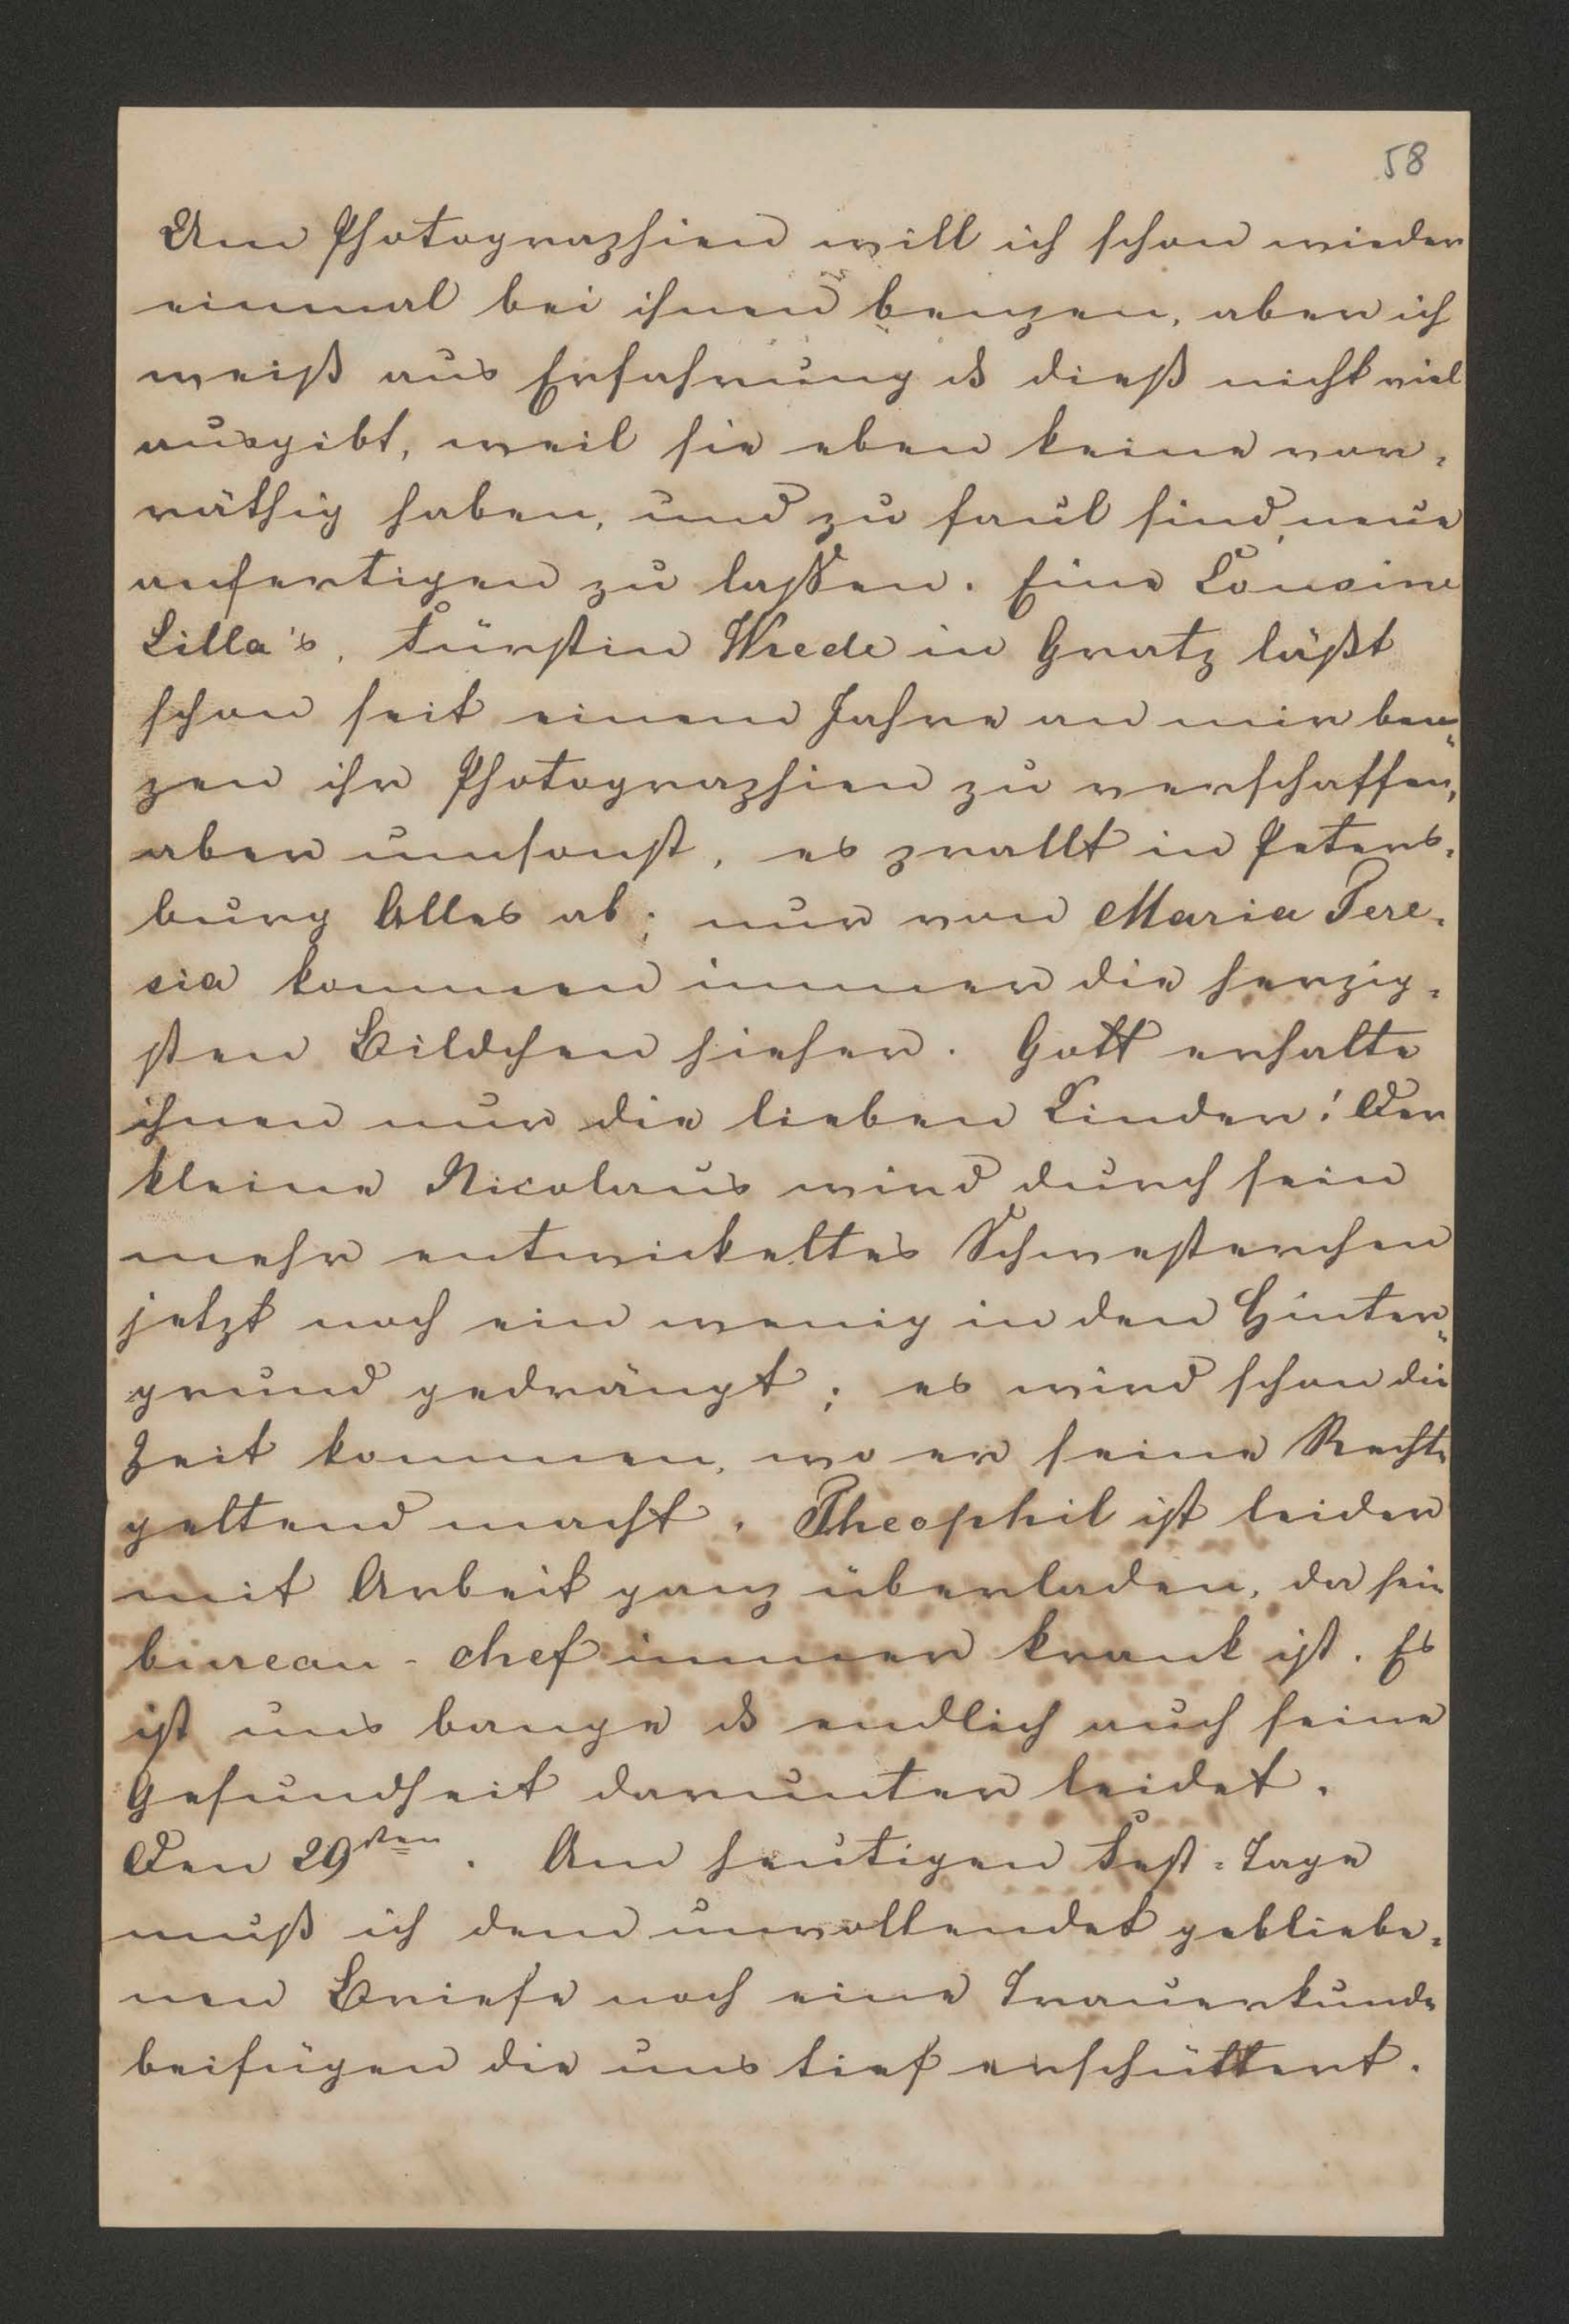 58
Um Photographien will ich schon wieder
einmal bei ihnen benzen, aber ich
weiß aus Erfahrung ds dieß nicht viel
ausgibt, weil sie eben keine vor=
räthig haben, und zu faul sind, neue
anfertigen zu lassen. Eine Cousine
Lilla's, Fürstin Wrede in Gratz läßt
schon seit einem Jahre an mir ben=
zen ihr Photographien zu verschaffen,
aber umsonst, es prallt in Peters=
burg Alles ab; nur von Maria Tere=
sia kommen immer die herzig=
sten Bildchen hieher. Gott erhalte
ihnen nur die lieben Kinder! Der
kleine Nicolaus wird durch sein
mehr entwickeltes Schwesterchen
jetzt noch ein wenig in den Hinter=
grund gedrängt; es wird schon die
Zeit kommen, wo er seine Rechte
geltend macht. Theophil ist leider
mit Arbeit ganz überladen, da sein
bureau-chef immer krank ist. Es
ist uns bange ds endlich auch seine
Gesundheit darunter leidet.
Den 29sten. Am heutigen Fest=Tage
muß ich dem unvollendet gebliebe=
nen Briefe noch eine Trauerkunde
beifügen die uns tief erschüttert.